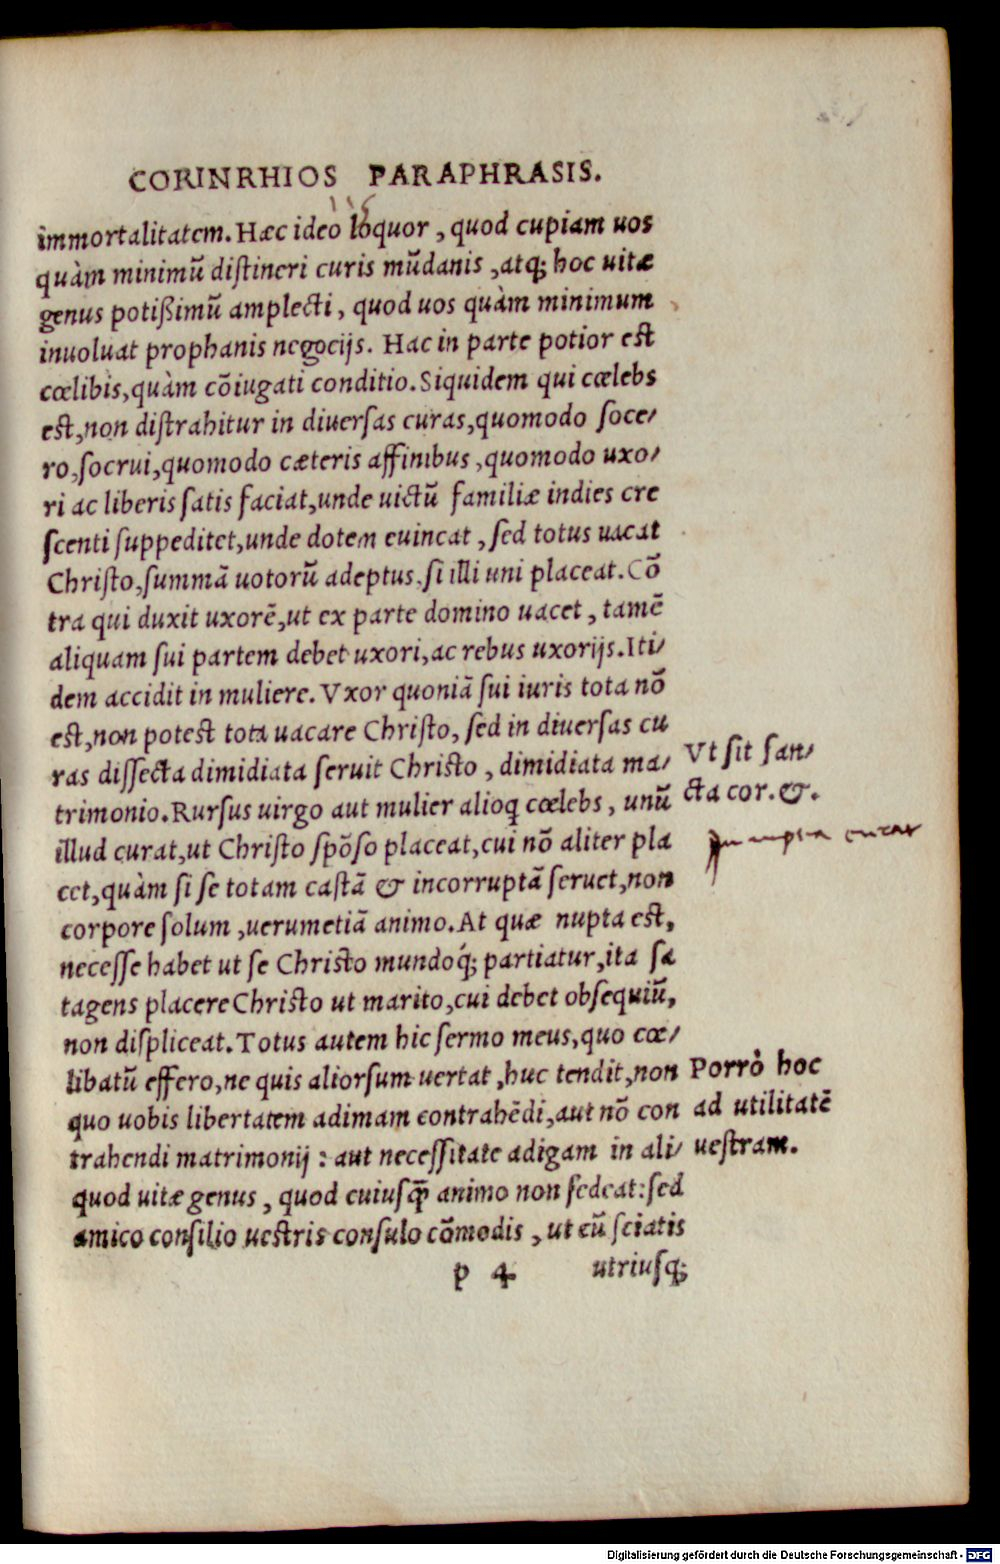 CORINRHIOS PARAPHRASIS.
immortalitatem. Hæc ideo loquor, quod cupiam uos
quàm minimũ distineri curis mũdanis, atq; hoc uitæ
genus potißimũ amplecti, quod uos quàm minimum
inuoluat prophanis negocijs. Hac in parte potior est
cœlibis, quàm cõiugati conditio. Siquidem qui cœlebs
est, non distrahitur in diuersas curas, quomodo soce/
ro, socrui, quomodo cæteris affinibus, quomodo uxo/
ri ac liberis satis faciat, unde uictũ familiæ indies cre
scenti suppeditet, unde dotem euincat, sed totus uacat
Christo, summã uotorũ adeptus, si illi uni placeat. Cõ
tra qui duxit uxorẽ, ut ex parte domino uacet, tamẽ
aliquam sui partem debet uxori, ac rebus uxorijs. Iti/
dem accidit in muliere. Vxor quoniã sui iuris tota nõ
est, non potest tota uacare Christo, sed in diuersas cu
ras dissecta dimidiata seruit Christo, dimidiata ma/
trimonio. Rursus uirgo aut mulier alioq cœlebs, unũ
illud curat, ut Christo spõso placeat, cui nõ aliter pla
cet, quàm si se totam castã & incorruptã seruet, non
corpore solum, uerumetiã animo. At quæ nupta est,
necesse habet ut se Christo mundoq́; partiatur, ita sa
tagens placere Christo ut marito, cui debet obsequiũ,
non displiceat. Totus autem hic sermo meus, quo cœ/
libatũ effero, ne quis aliorsum uertat, huc tendit, non
quo uobis libertatem adimam contrahẽdi, aut nõ con
trahendi matrimonij: aut necessitate adigam in ali/
quod uitæ genus, quod cuiusq̃ animo non sedeat: sed
amico consilio uestris consulo cõmodis, ut cũ sciatis
p 4 utriusq;
Vt sit san/
cta cor. &.
nupta curat
Porrò hoc
ad utilitatẽ
uestram.
Digitalisierung gefördert durch die Deutsche Forschungsgemeinschaft - DFG